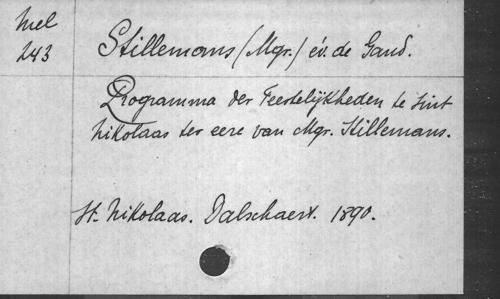 Mel
243
Stillemans (Mgr.) év. de Gand.
Programma der Feestelijkheden te Sint
Nikolaas ter eere van Mgr. Stillemans.
St. Nikolaas. Dalschaert. 1890.